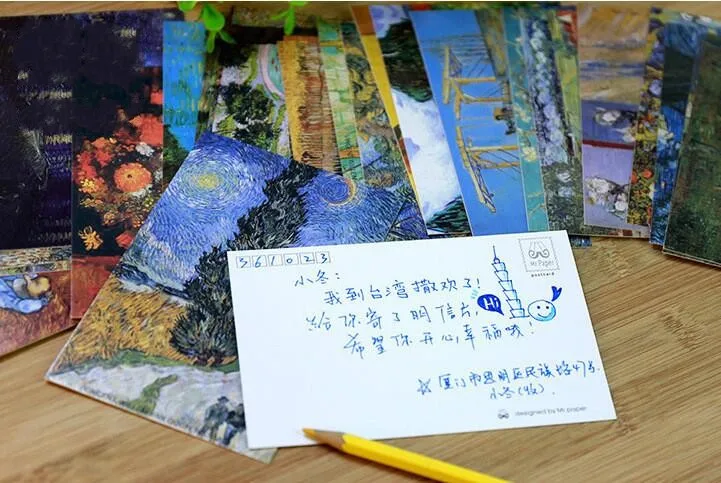 361023
Mr Paper
postcard
小冬：
我到台湾撒欢了！
Hi
给你寄了明信片，
希望你开心，幸福哦！
厦门市思明区民族路47号
小冬（收）
designed by Mr paper